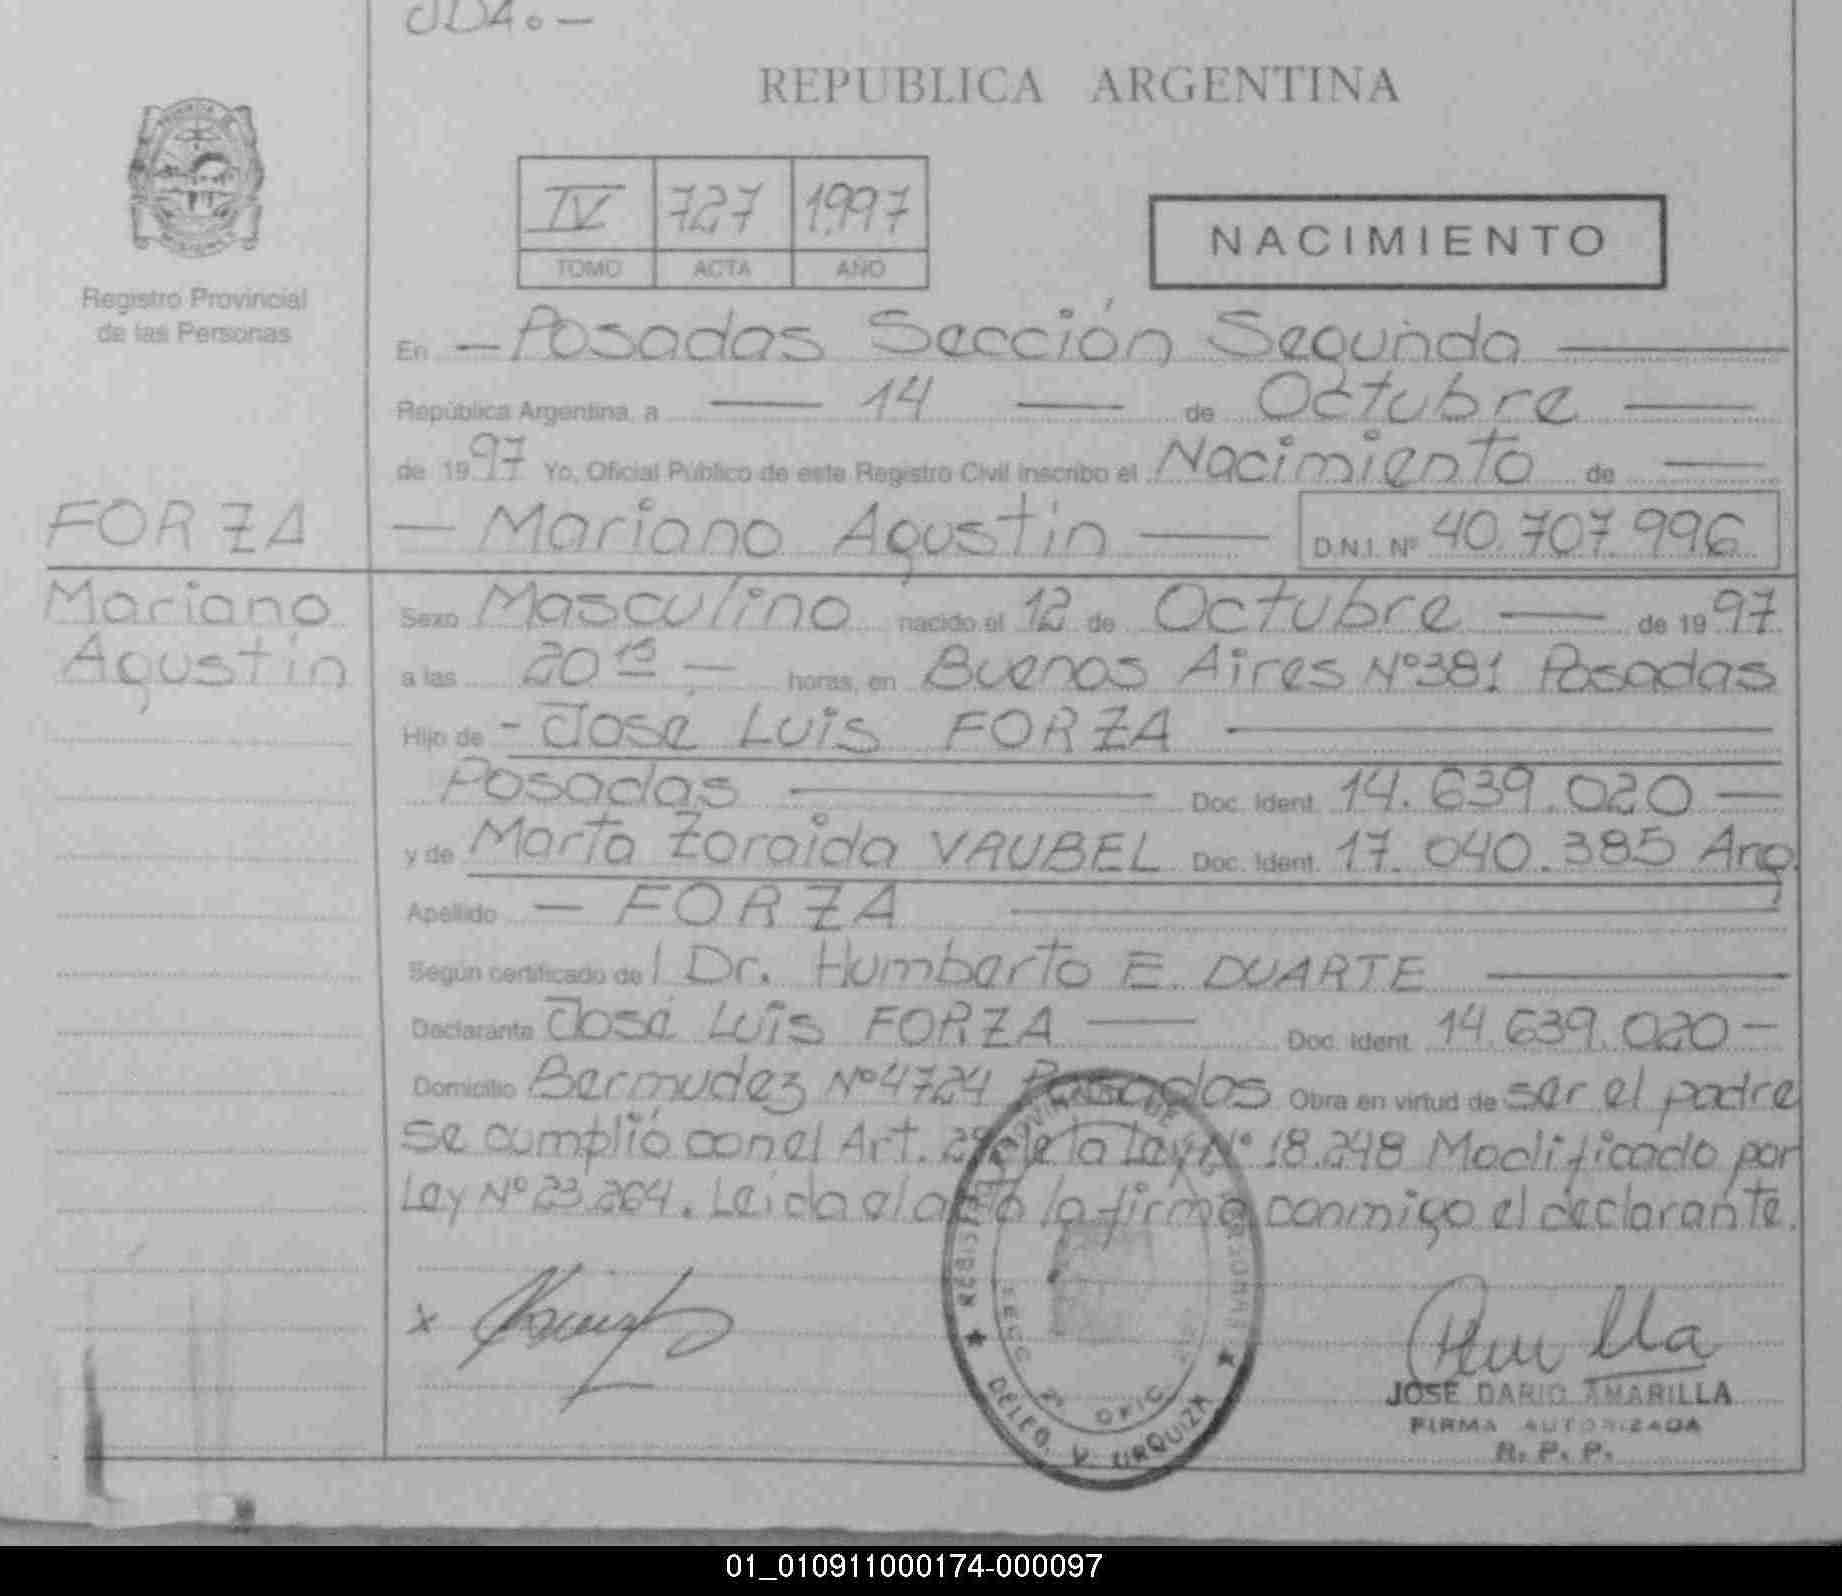 JDA.-
REPUBLICA ARGENTINA
IV 727 1997
TOMO ACTA AÑO
NACIMIENTO
Registro Provincial
de las Personas
En - Posadas Sección Segunda
República Argentina, a 14 de Octubre
de 1997 Yo, Oficial Público de este Registro Civil inscribo el Nacimiento de
FORZA
Mariano
Agustín
- Mariano Agustín - D.N.I. Nº 40.707.996
Sexo Masculino nacido el 12 de Octubre - de 1997
a las 20 15 - horas, en Buenos Aires Nº 381 Posadas
Hijo de - José Luis FORZA
Posadas - Doc. Ident. 14.639.020 -
y de Marta Zoraida VAUBEL Doc. Ident. 17.040.385 Arg.
Apellido - FORZA
Según certificado de l Dr. Humberto E. DUARTE
Declarante José Luis FORZA - Doc. Ident. 14.639.020 -
Domicilio Bermudez Nº 4724 Posadas Obra en virtud de ser el padre
se cumplió con el Art. 2º de la Ley Nº 18.248 Modificado por
Ley Nº 23.264. Leida el acta la firma conmigo el declarante.
x
REGISTRO PROVINCIAL DE LAS PERSONAS
SECC. 2º OFIC.
DELEG. V. URQUIZA
JOSE DARIO AMARILLA
FIRMA AUTORIZADA
R. P. P.
01_010911000174-000097